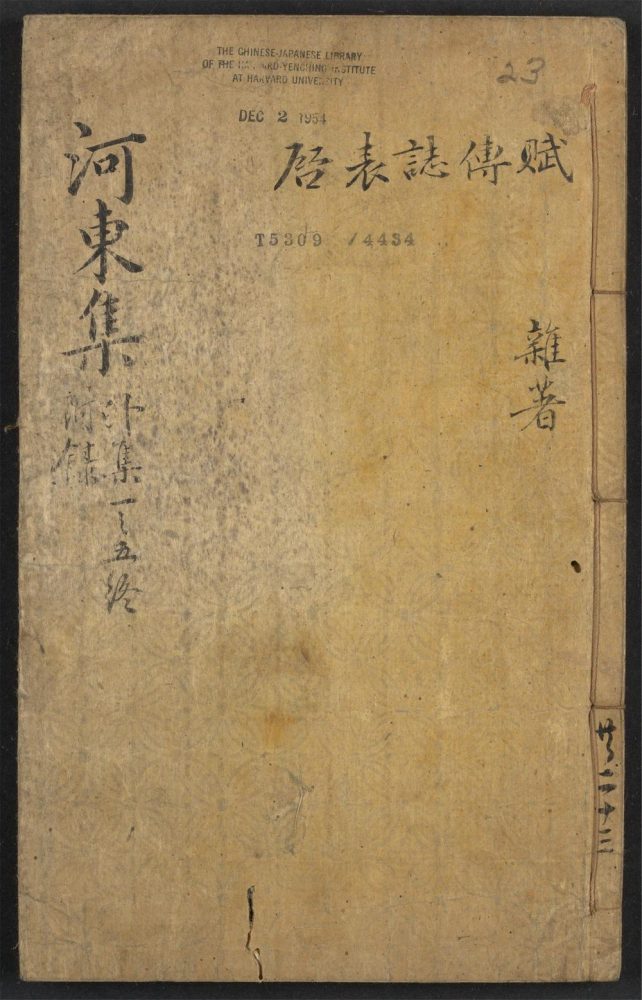 THE CHINESE-JAPANESE LIBRARY
OF THE HARVARD-YENCHING INSTITUTE
AT HARVARD UNIVERSITY
DEC 2 1954
23
賦傳誌表啓
T5309 /4434
雜著
河東集
外集一之五終
附錄
共二十三